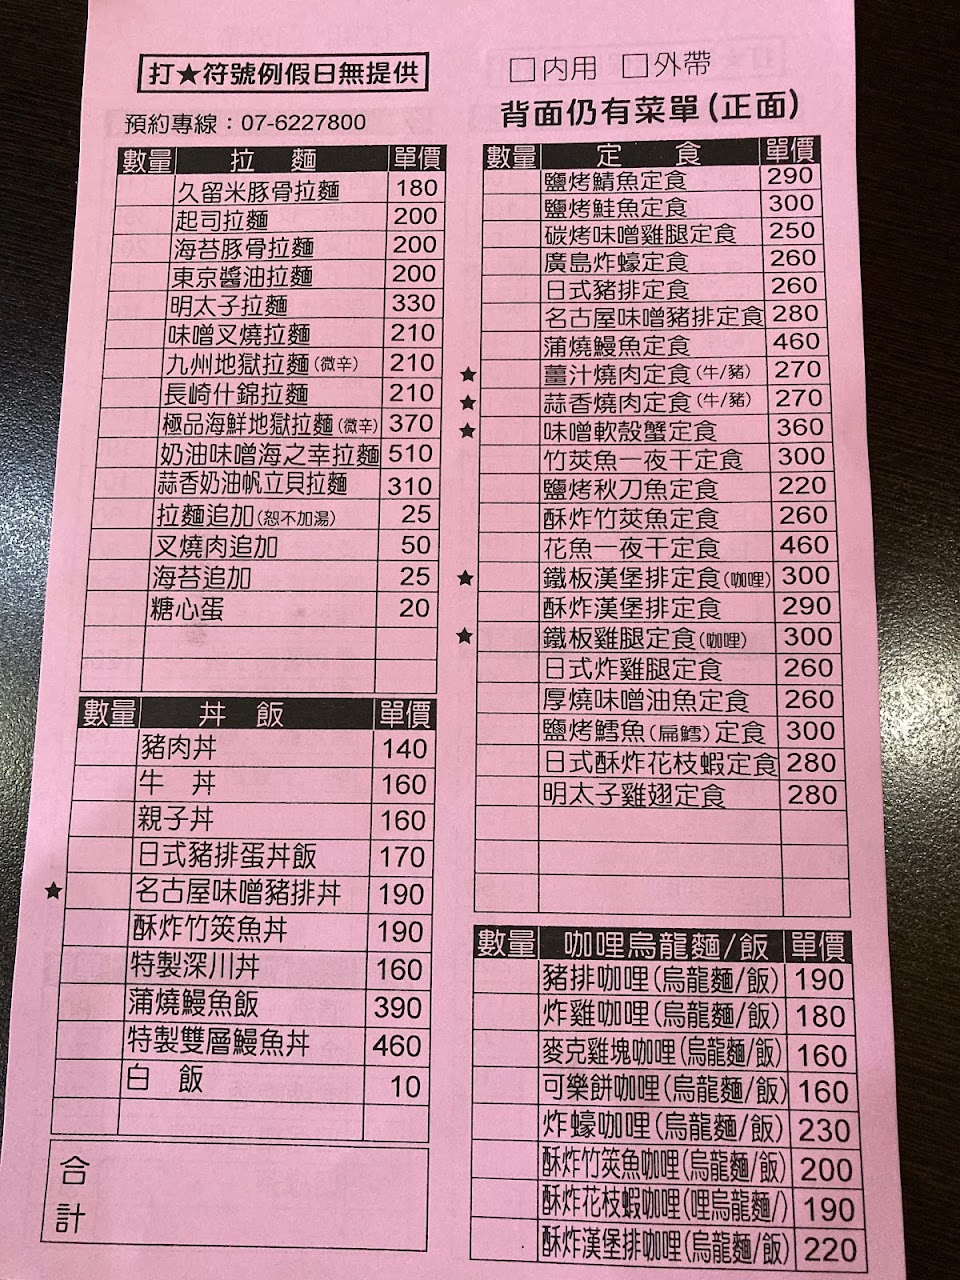 打★符號例假日無提供
□內用 □外帶
預約專線：07-6227800
背面仍有菜單(正面)
數量 拉麵 單價
久留米豚骨拉麵 180
起司拉麵 200
海苔豚骨拉麵 200
東京醬油拉麵 200
明太子拉麵 330
味噌叉燒拉麵 210
九州地獄拉麵(微辛) 210
長崎什錦拉麵 210
極品海鮮地獄拉麵(微辛) 370
奶油味噌海之幸拉麵 510
蒜香奶油帆立貝拉麵 310
拉麵追加(恕不加湯) 25
叉燒肉追加 50
海苔追加 25
糖心蛋 20
數量 丼飯 單價
豬肉丼 140
牛 丼 160
親子丼 160
日式豬排蛋丼飯 170
★ 名古屋味噌豬排丼 190
酥炸竹筴魚丼 190
特製深川丼 160
蒲燒鰻魚飯 390
特製雙層鰻魚丼 460
白 飯 10
合計
數量 定食 單價
鹽烤鯖魚定食 290
鹽烤鮭魚定食 300
碳烤味噌雞腿定食 250
廣島炸蠔定食 260
日式豬排定食 260
名古屋味噌豬排定食 280
蒲燒鰻魚定食 460
★ 薑汁燒肉定食(牛/豬) 270
★ 蒜香燒肉定食(牛/豬) 270
★ 味噌軟殼蟹定食 360
竹莢魚一夜干定食 300
鹽烤秋刀魚定食 220
酥炸竹莢魚定食 260
花魚一夜干定食 460
★ 鐵板漢堡排定食(咖哩) 300
酥炸漢堡排定食 290
★ 鐵板雞腿定食(咖哩) 300
日式炸雞腿定食 260
厚燒味噌油魚定食 260
鹽烤鱈魚(扁鱈)定食 300
日式酥炸花枝蝦定食 280
明太子雞翅定食 280
數量 咖哩烏龍麵/飯 單價
豬排咖哩(烏龍麵/飯) 190
炸雞咖哩(烏龍麵/飯) 180
麥克雞塊咖哩(烏龍麵/飯) 160
可樂餅咖哩(烏龍麵/飯) 160
炸蠔咖哩(烏龍麵/飯) 230
酥炸竹筴魚咖哩(烏龍麵/飯) 200
酥炸花枝蝦咖哩(哩烏龍麵/) 190
酥炸漢堡排咖哩(烏龍麵/飯) 220